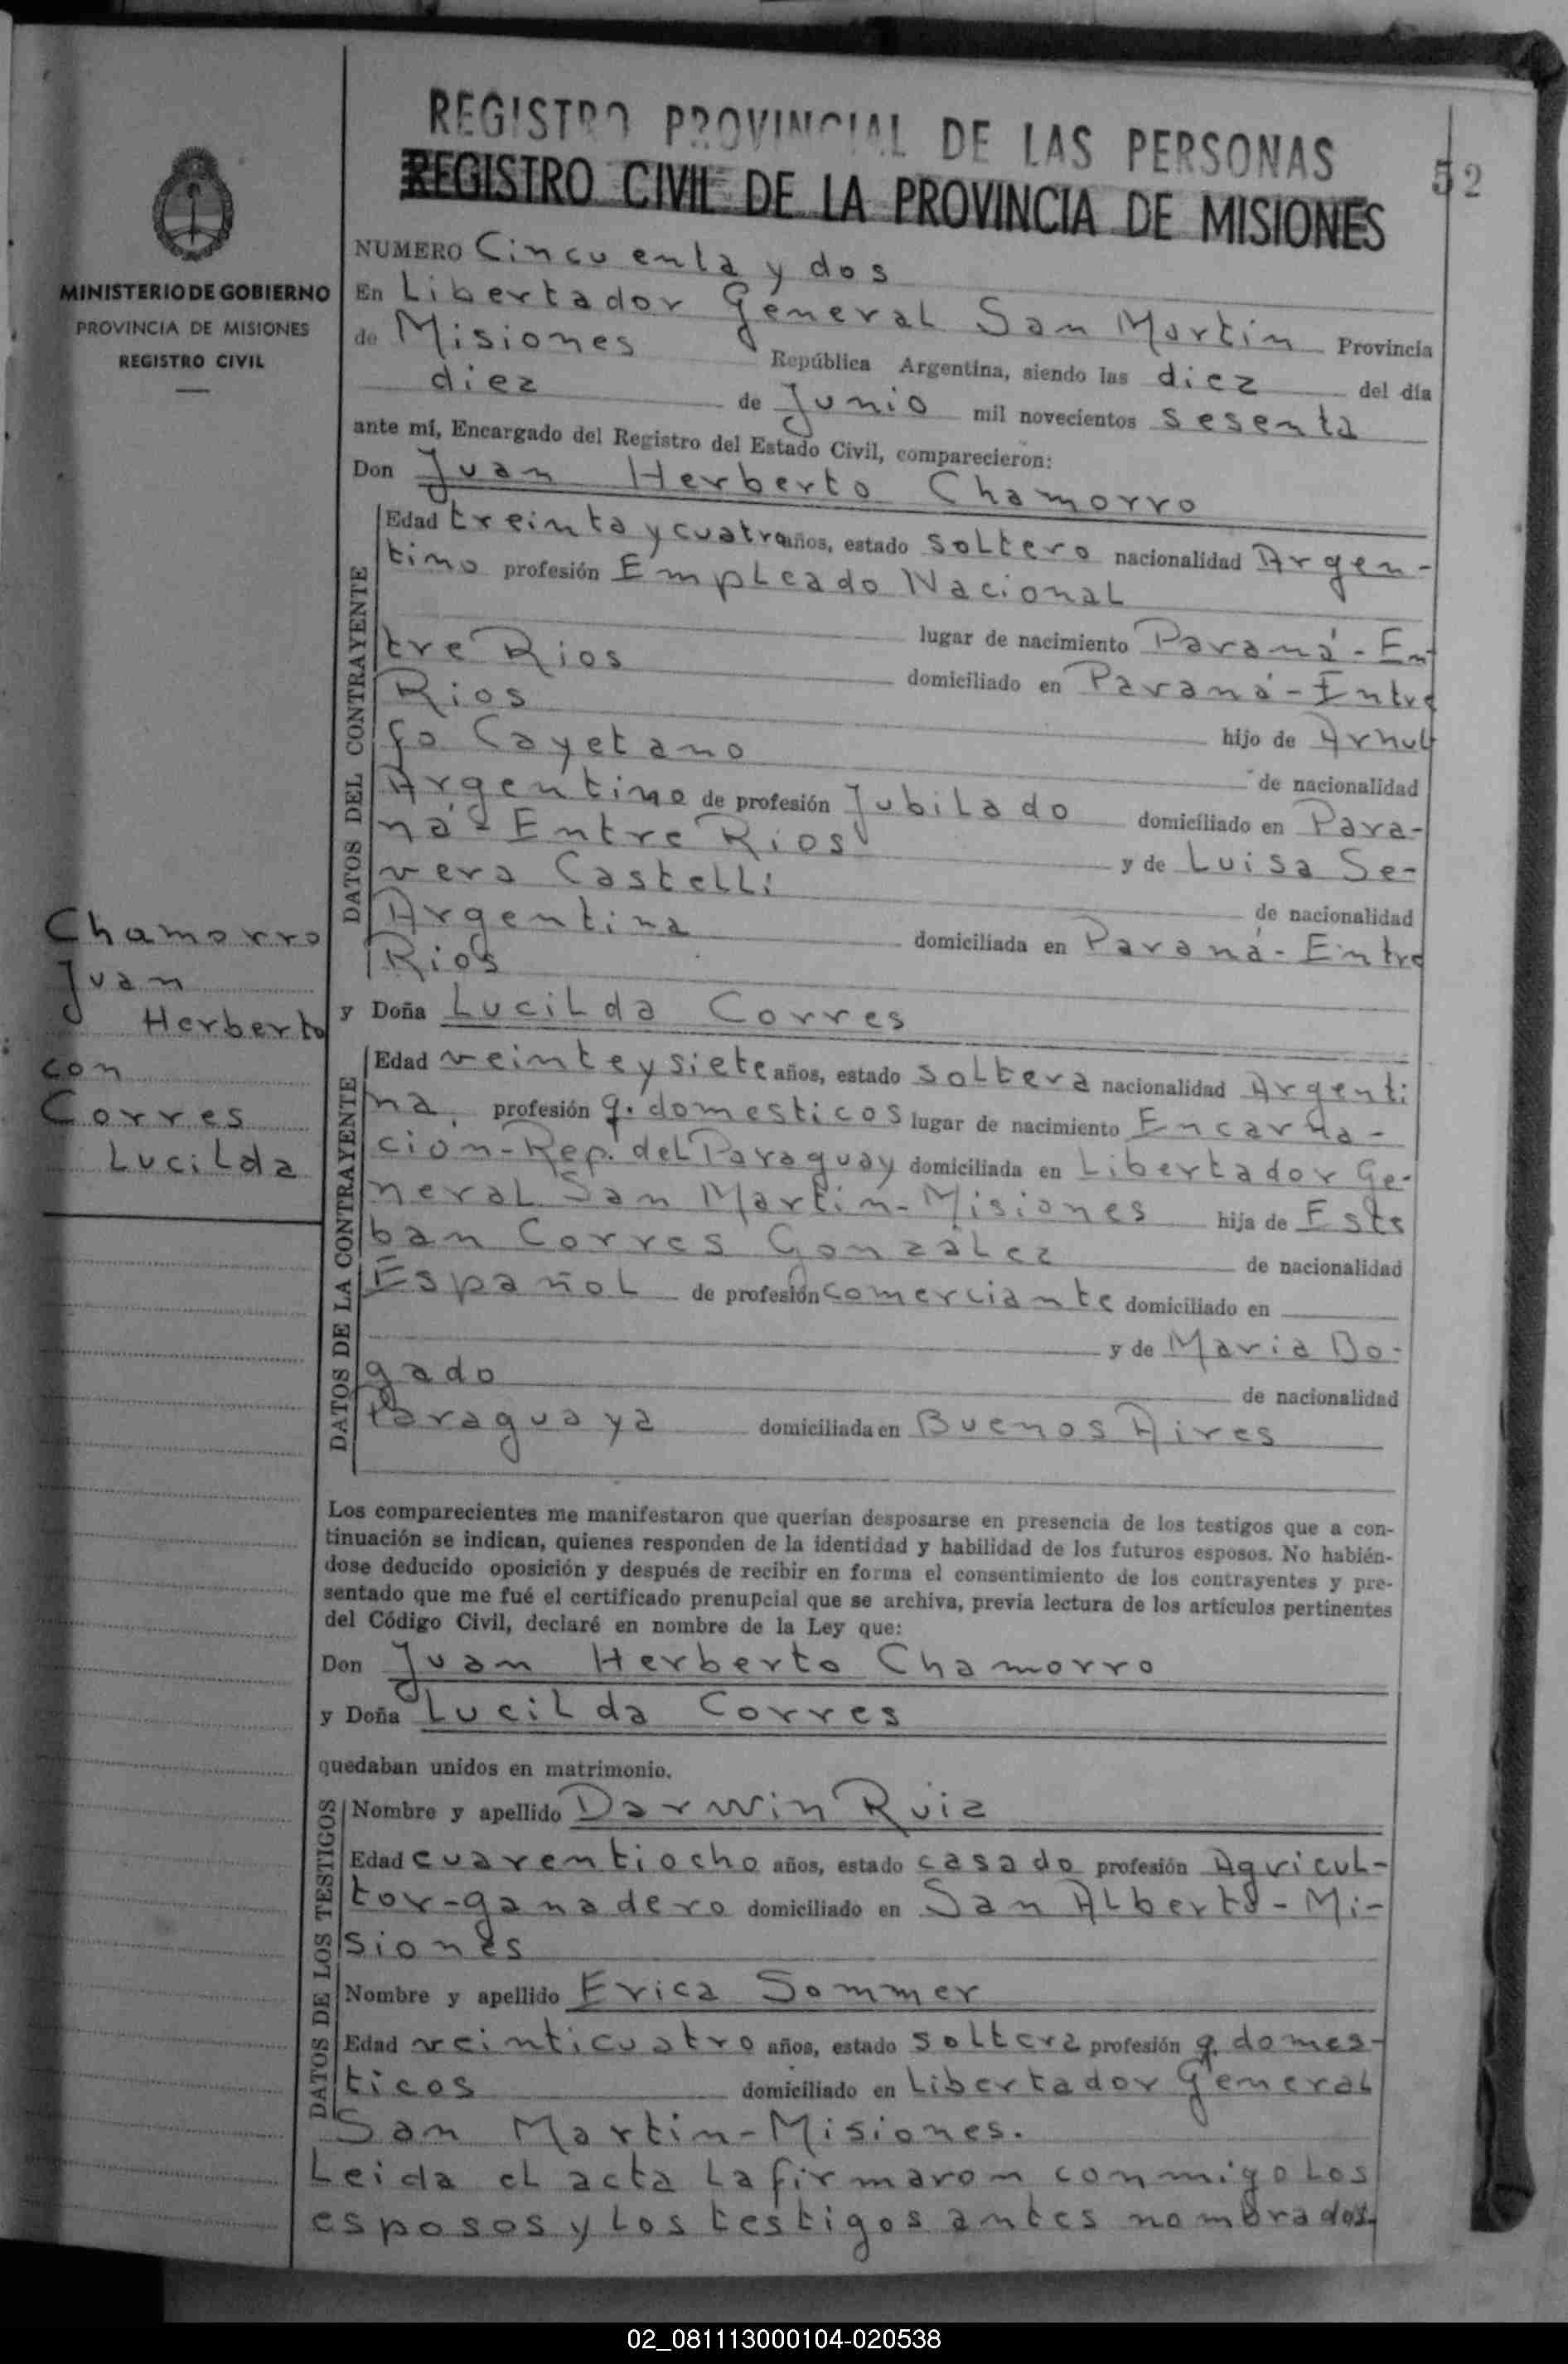 REGISTRO PROVINCIAL DE LAS PERSONAS
REGISTRO CIVIL DE LA PROVINCIA DE MISIONES
52
MINISTERIO DE GOBIERNO
PROVINCIA DE MISIONES
REGISTRO CIVIL
NUMERO Cincuenta y dos
En Libertador General San Martin Provincia
de Misiones República Argentina, siendo las diez del día
diez de Junio mil novecientos sesenta
ante mí, Encargado del Registro del Estado Civil, comparecieron:
Don Juan Herberto Chamorro
DATOS DEL CONTRAYENTE
Edad treinta y cuatro años, estado soltero nacionalidad Argen-
tino profesión Empleado Nacional
lugar de nacimiento Paraná - En
tre Rios domiciliado en Paraná - Entre
Rios hijo de Arnul
fo Cayetano de nacionalidad
Argentino de profesión Jubilado domiciliado en Para-
ná - Entre Rios y de Luisa Se-
vera Castelli de nacionalidad
Argentina domiciliada en Paraná - Entre
Rios
Chamorro
Juan
Herberto
con
Corres
Lucilda
y Doña Lucilda Corres
DATOS DE LA CONTRAYENTE
Edad veinte y siete años, estado soltera nacionalidad Argenti
na, profesión q. domesticos lugar de nacimiento Encarna-
cion - Rep. del Paraguay domiciliada en Libertador Ge-
neral San Martin - Misiones hija de Este
ban Corres González de nacionalidad
Español de profesión comerciante domiciliado en
y de Maria Do-
gado de nacionalidad
Paraguaya domiciliada en Buenos Aires
Los comparecientes me manifestaron que querían desposarse en presencia de los testigos que a con-
tinuación se indican, quienes responden de la identidad y habilidad de los futuros esposos. No habién-
dose deducido oposición y después de recibir en forma el consentimiento de los contrayentes y pre-
sentado que me fué el certificado prenupcial que se archiva, previa lectura de los artículos pertinentes
del Código Civil, declaré en nombre de la Ley que:
Don Juan Herberto Chamorro
y Doña Lucilda Corres
quedaban unidos en matrimonio.
DATOS DE LOS TESTIGOS
Nombre y apellido Darwin Ruiz
Edad cuarentiocho años, estado casado profesión Agricul-
tor-ganadero domiciliado en San Alberto - Mi-
siones
Nombre y apellido Erica Sommer
Edad veinticuatro años, estado soltera profesión q. domes-
ticos domiciliado en Libertador General
San Martin - Misiones.
Leida el acta la firmaron conmigo los
esposos y los testigos antes nombrados.
02_081113000104-020538